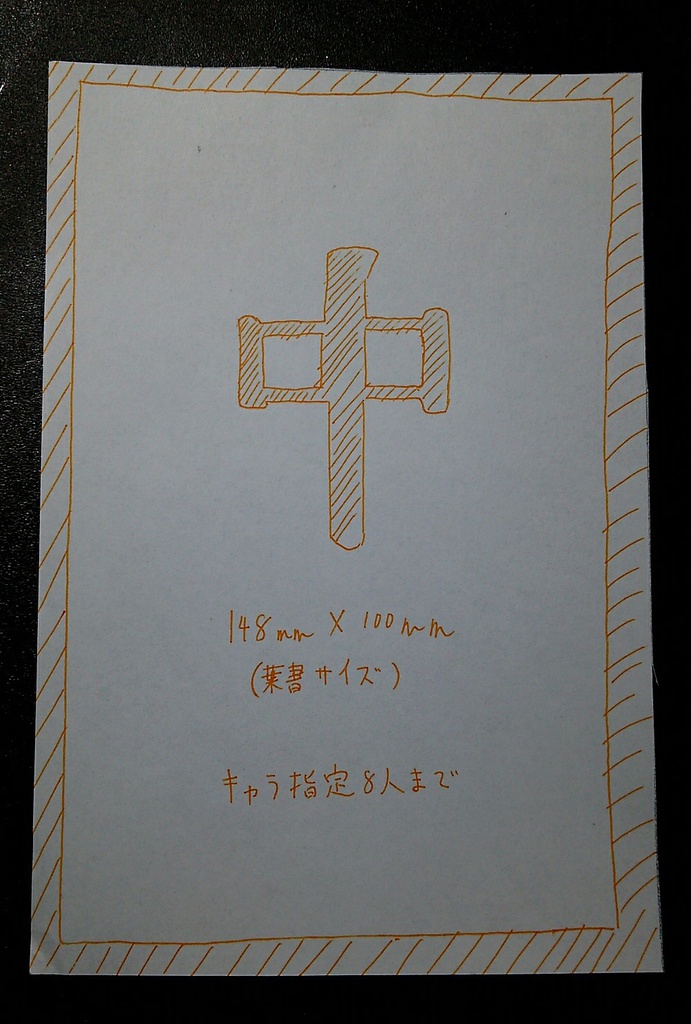 中
148mm × 100mm
(葉書サイズ)
キャラ指定8人まで